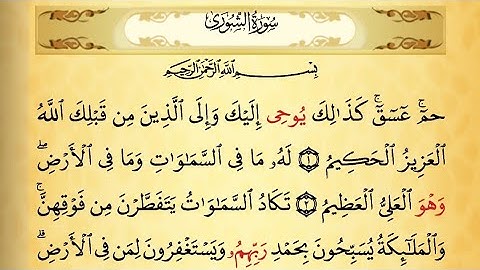 سُورَةُ الشُّورَىٰ
بِسْمِ اللَّهِ الرَّحْمَٰنِ الرَّحِيمِ
حمٓۚ عٓسٓقٓۚ كَذَٰلِكَ يُوحِى إِلَيْكَ وَإِلَى ٱلَّذِينَ مِن قَبْلِكَ ٱللَّهُ
ٱلْعَزِيزُ ٱلْحَكِيمُ ١ لَهُۥ مَا فِى ٱلسَّمَٰوَٰتِ وَمَا فِى ٱلْأَرْضِۖ
وَهْوَ ٱلْعَلِىُّ ٱلْعَظِيمُ ٢ تَكَادُ ٱلسَّمَٰوَٰتُ يَتَفَطَّرْنَ مِن فَوْقِهِنَّۚ
وَٱلْمَلَٰٓئِكَةُ يُسَبِّحُونَ بِحَمْدِ رَبِّهِمُۥ وَيَسْتَغْفِرُونَ لِمَن فِى ٱلْأَرْضِۗ